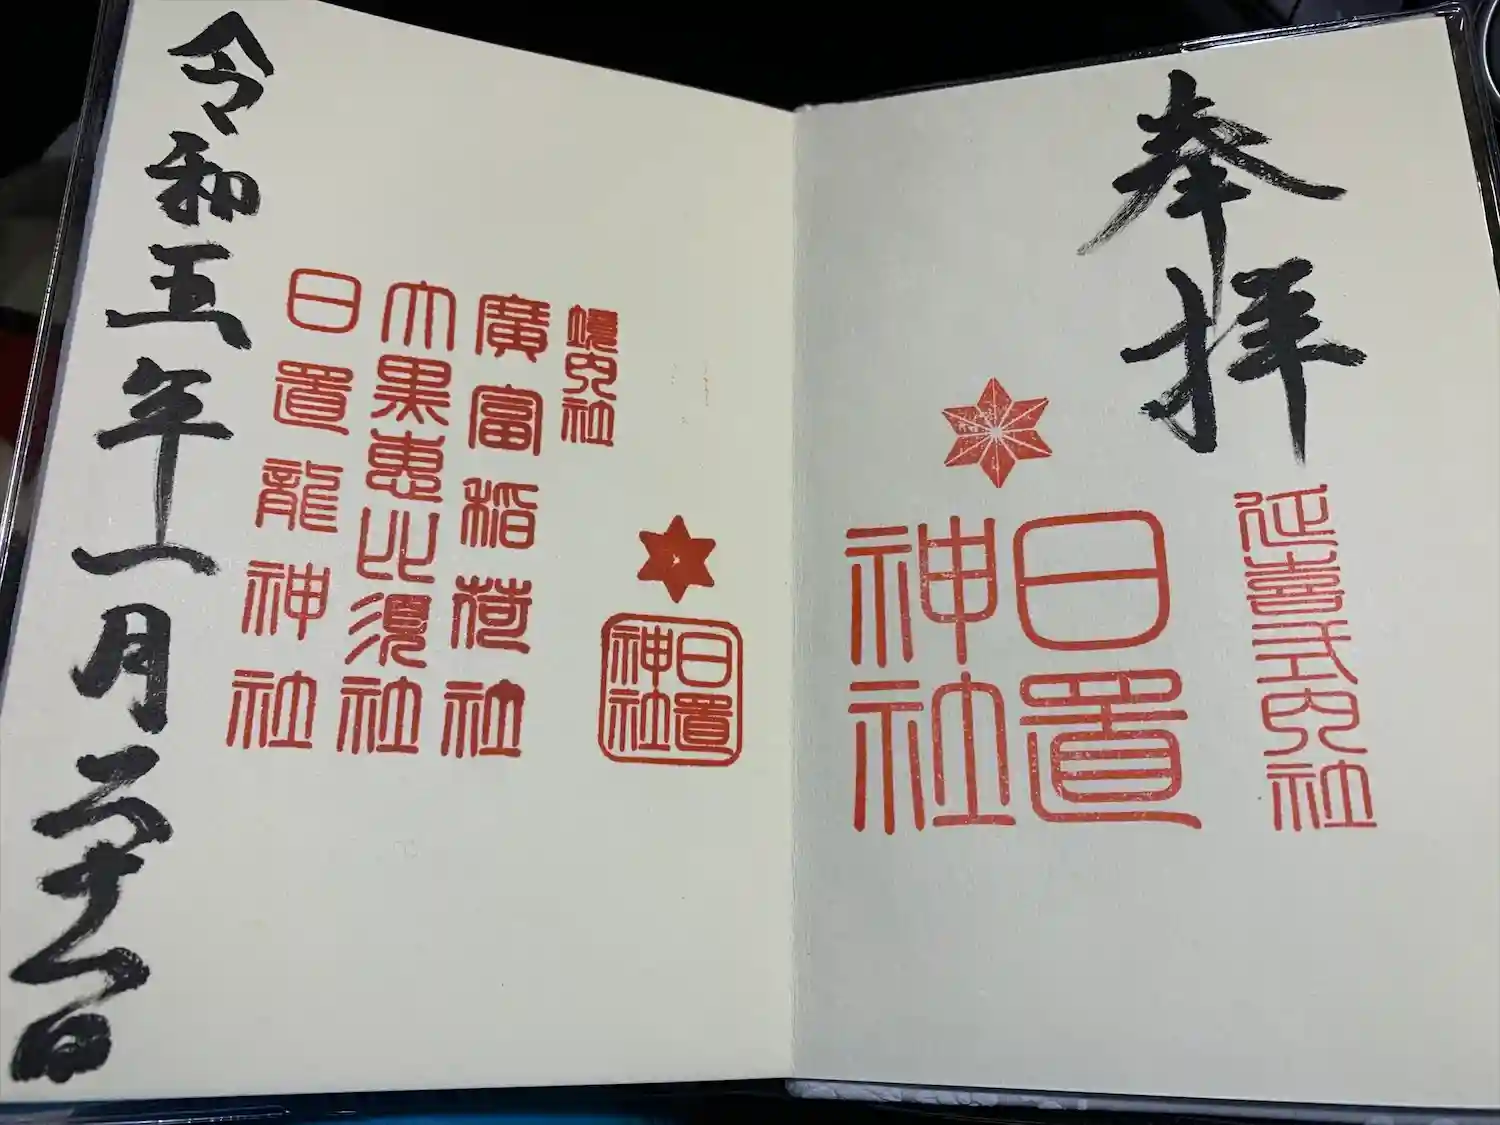 奉拝
延喜式内社
日置
神社
日置
神社
境内社
廣富稲荷社
大黒恵比須社
日置龍神社
令和五年一月二十八日